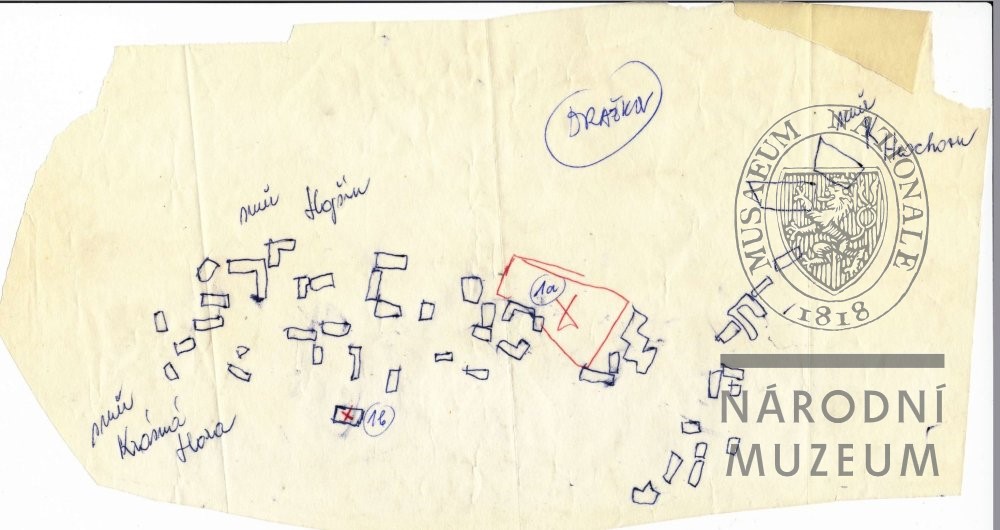 DRAŽKOV
směr
Hrachov
směr Hojšín
1a
směr
Krásná
Hora
1b
MUSAEUM NATIONALE
1818
NÁRODNÍ
MUZEUM